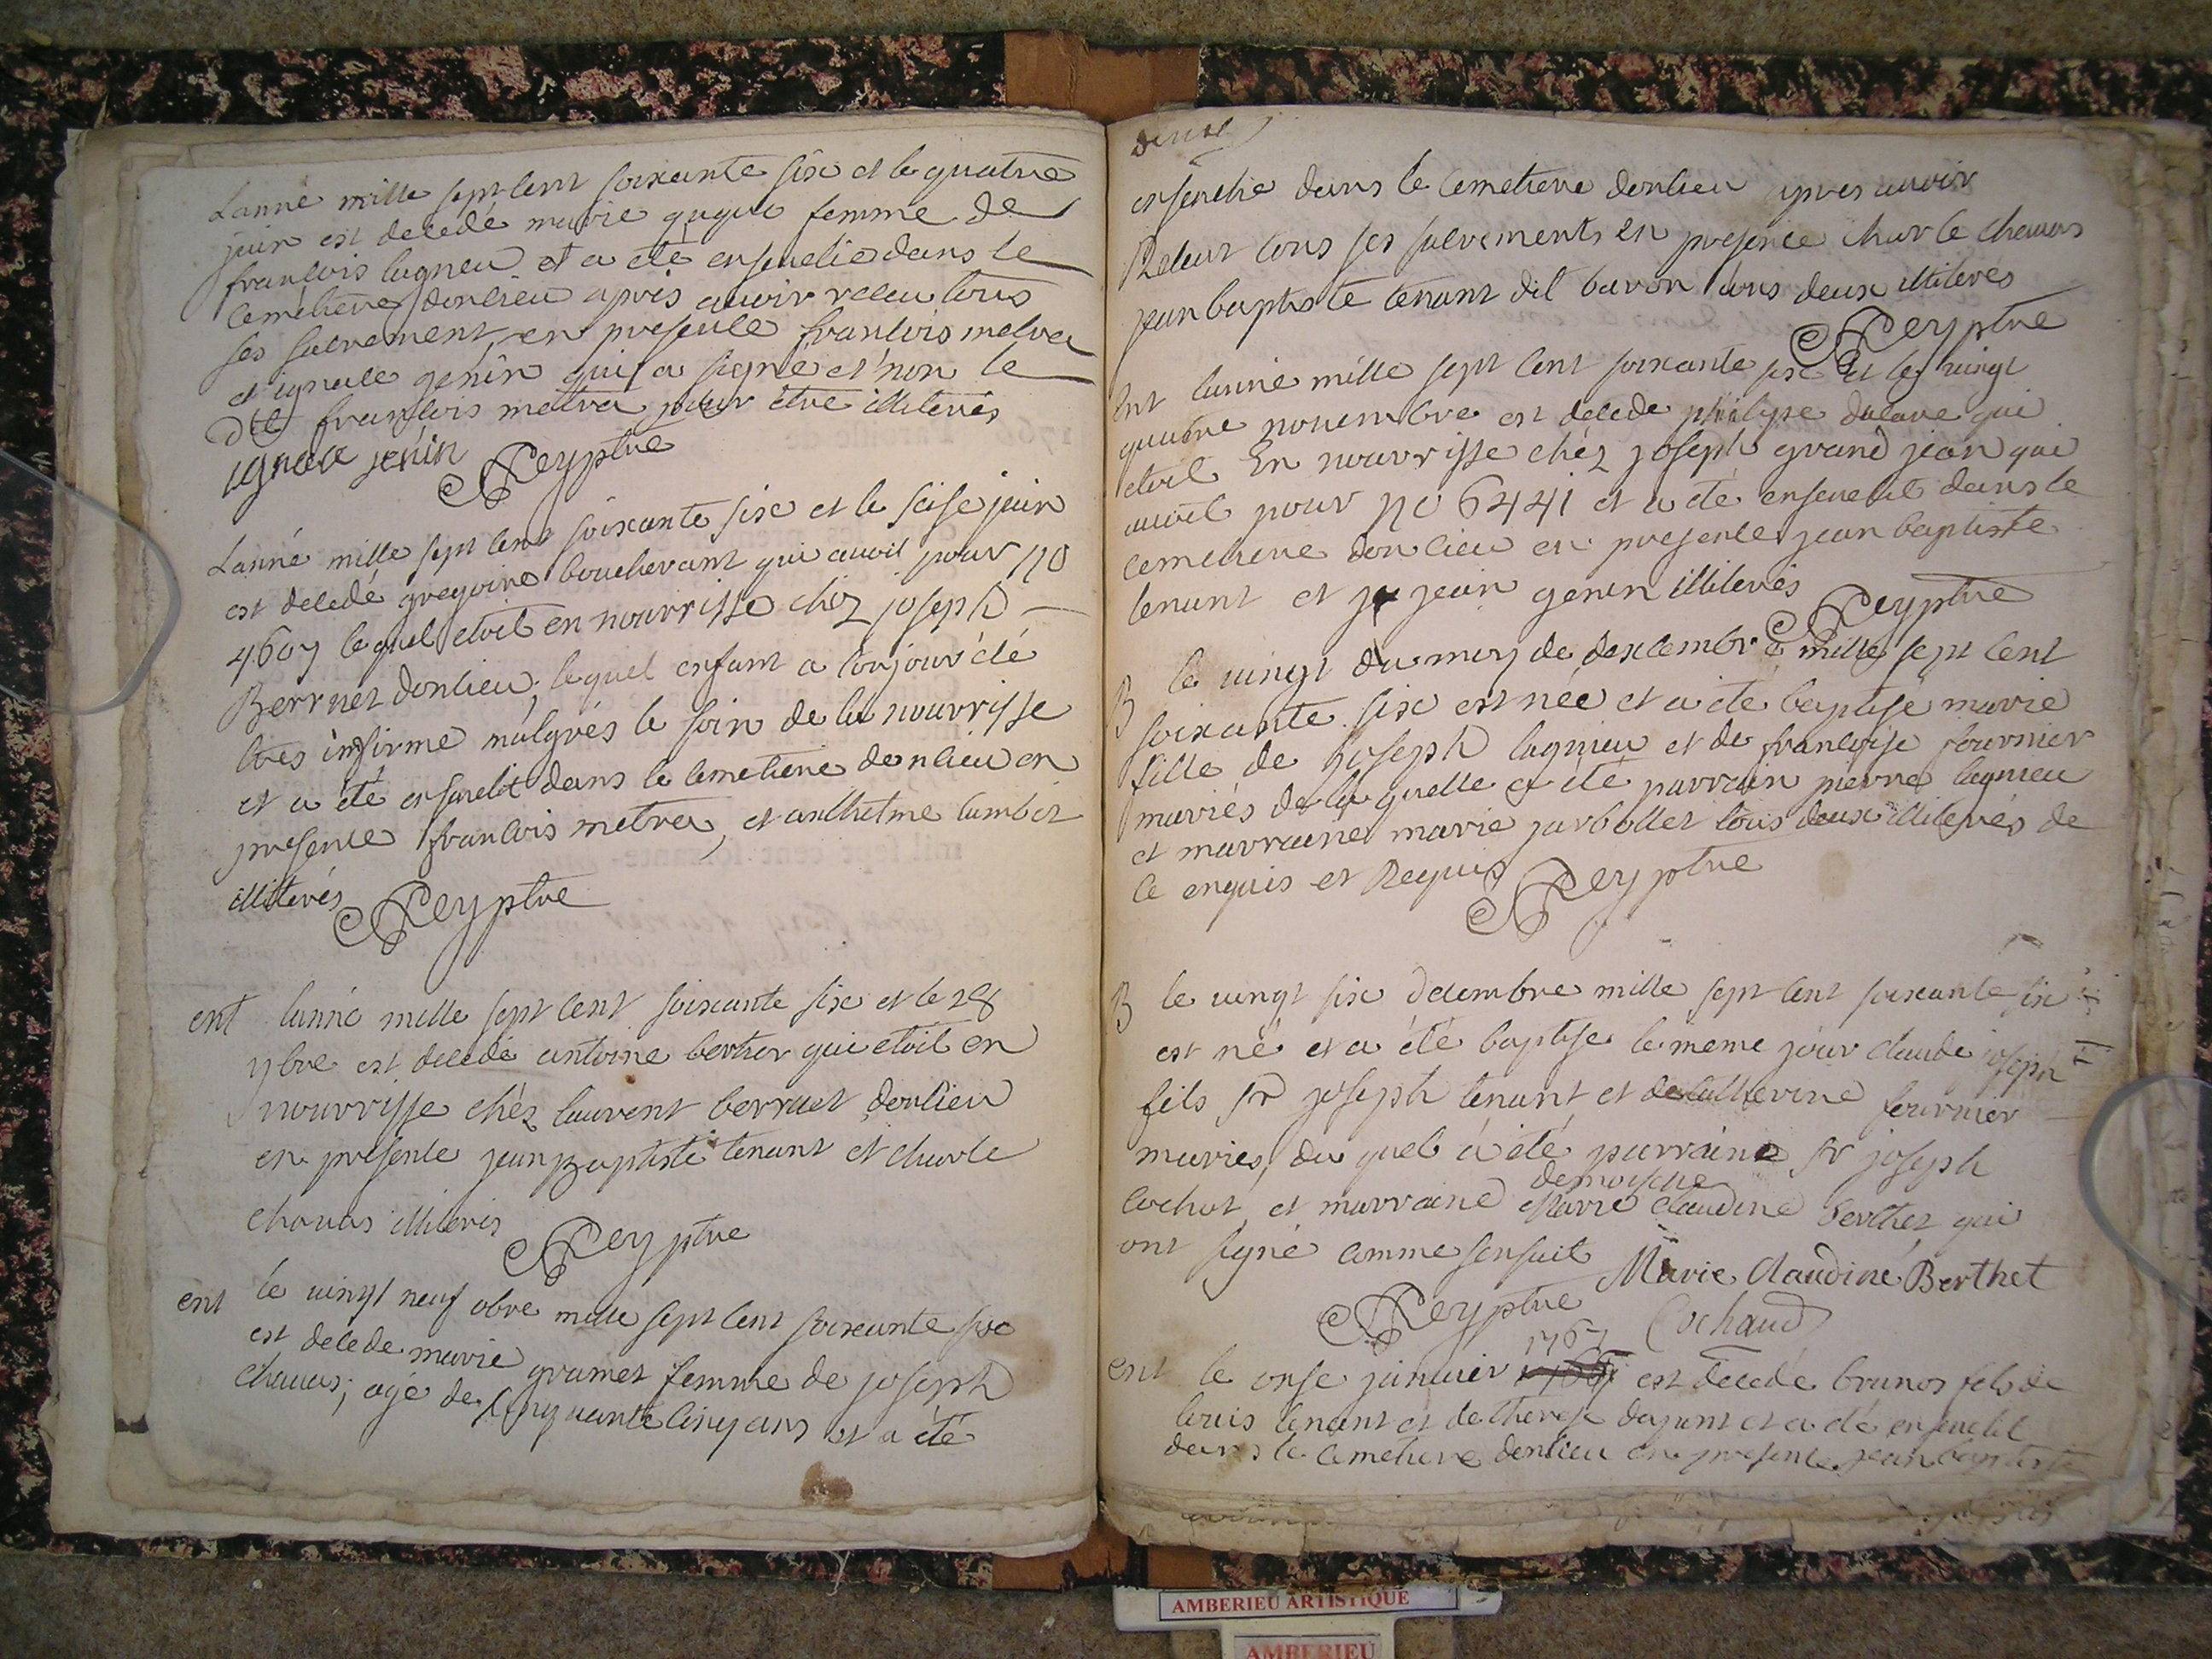 Lanné mille sept cent soixante six et le quatre
juin est decedé marie guque femme de
francois lagneu et a eté ensevelie dans le
cemetiere donlieu apres avoir receu tous
ses sacrement en presence francois metra
et ignace genin qui a signe et non le
dit francois metra pour être illiterés
ignace jenin Rey ptre
Lanné mille sept cent soixante six et le seise juin
est decedé gregoire boucherant qui avoit pour no
4607 lequel etoit en nourrisse chez joseph
Berruet donlieu, lequel enfant a toujour été
tres infirme malgrés le soin de la nourrisse
et a été ensevelit dans le cemetiere donlieu en
presence francois metra, et anthelme lambet
illiterés Rey ptre
ent lanné mille sept cent soixante six et le 28
7bre est decedé antoine berthor qui etoit en
nourrisse chéz laurent berruet donlieu
en presente jean Baptiste tenant et charle
chavas illiterés Rey ptre
ent le vingt neuf obre mille sept cent soixante six
est decede marie gramet femme de joseph
chavas, agé de cinquante cinq ans et a été
ensevelie dans le cemetiere donlieu apres avoir
Receut tous ses sacrements en presence charle chavas
jean baptiste tenant dit baron tous deux illiterés
Rey ptre
Ent lanné mille sept cent soixante six et le vingt
quatre novembre est decede philipe dalave qui
etoit En nourrisse chéz joseph grand jean qui
avoit pour no 6441 et a été ensevelit dans le
cemetiere donlieu en presence jean baptiste
tenant et jean genin illiterés Rey ptre
B le vingt du moy de dexcembre mille sept cent
soixante six est née et a été baptisé marie
fille de joseph lagnieu et de francoise fournier
mariés de la quelle a été parrain pierre lagnieu
et marraine marie jarbollet tous deux illiterés de
ce enquis et Requis Rey ptre
B le vingt six decembre mille sept cent soixante six
est né et a été baptisé le même jour claude joseph
fils sr joseph tenant et de catherine fournier
mariés, du quel a été parraine sr joseph
demoiselle
cochat et marraine Marie claudine berthet qui
ont signé comme sensuit Marie Claudine Berthet
Rey ptre Cochaud
1767
ent le onse janvier est decedé brunos fils de
louis tenant et de therese dajant et a été ensevelit
dans le cemetiere donlieu en presence jean baptiste
AMBERIEU ARTISTIQUE
AMBERIEU